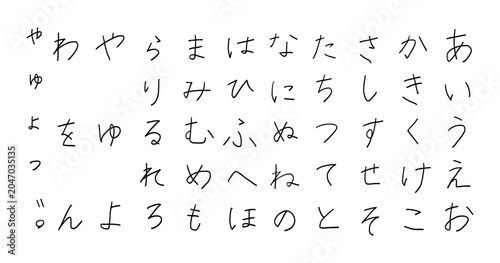 あいうえお
かきくけこ
さしすせそ
たちつてと
なにぬねの
はひふへほ
まみむめも
らりるれろ
やゆよ
わをん
ゃゅょっ゛゜
Adobe Stock | #2047035135